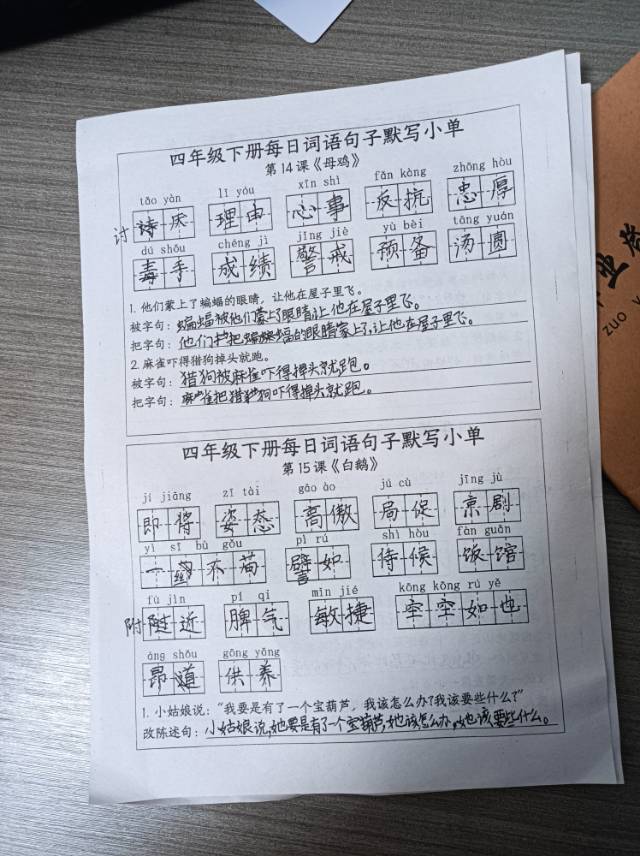 四年级下册每日词语句子默写小单
第14课《母鸡》
tǎo yàn lǐ yóu xīn shì fǎn kàng zhōng hòu
讨 厌 理由 心事 反抗 忠厚
dú shǒu chéng jì jǐng jiè yù bèi tāng yuán
毒手 成绩 警戒 预备 汤圆
1. 他们蒙上了蝙蝠的眼睛，让他在屋子里飞。
被字句：蝙蝠被他们蒙上了眼睛让他在屋子里飞。
把字句：他们把蝙蝠的眼睛蒙上了,让他在屋子里飞。
2. 麻雀吓得猎狗掉头就跑。
被字句：猎狗被麻雀吓得掉头就跑。
把字句：麻雀把猎狗吓得掉头就跑。
四年级下册每日词语句子默写小单
第15课《白鹅》
jí jiāng zī tài gāo ào jú cù jīng jù
即将 姿态 高傲 局促 京剧
yì sī bù gǒu pì rú shì hòu fàn guǎn
一丝不苟 譬如 侍候 饭馆
fù jìn pí qi mǐn jié kōng kōng rú yě
附 近 脾气 敏捷 空空如也
áng shǒu gōng yǎng
昂 供养
1. 小姑娘说：“我要是有了一个宝葫芦，我该怎么办?我该要些什么?”
改陈述句：小姑娘说,她要是有了一个宝葫芦,她该怎么办,她该要些什么。
zuo